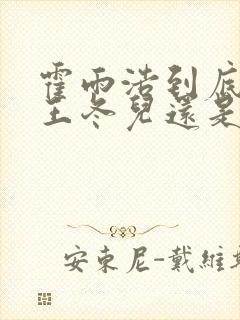 霍雨浩到底
王冬兒還是
安東尼-戴維斯